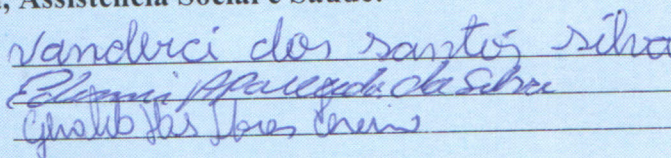 , Assistência Social e Saúde.
vanderci dos santos silva
Aparecida da Silva
Geraldo